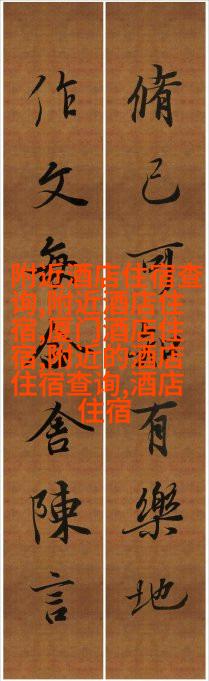 脩己可有樂地
作文每舍陳言
附近酒店住宿查
询,附近酒店住
宿,厦门酒店住
宿,附近的酒店
住宿查询,酒店
住宿